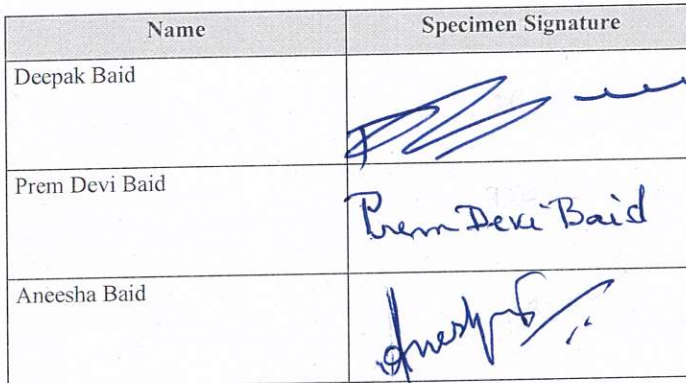 Name Specimen Signature
Deepak Baid
Prem Devi Baid Prem Devi Baid
Aneesha Baid